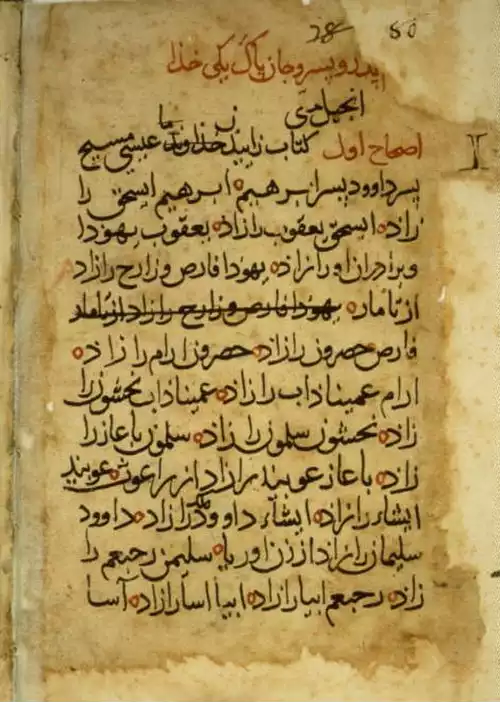 28 80
پدر و پسر و جان پاک یکی خدا
انجیل متی
اصحاح اول کتاب زاییدن خداوند ما عیسی مسیح
پسر داوود پسر ابرهیم ابرهیم اسحق را
زاده اسحق یعقوب را زاده یعقوب یهودا
و برادران او را زاده یهودا فارص و زارح را زاد
از تامار یهودا فارص و زارح را زاد از تامار
فارص حصرون را زاده حصرون ارام را زاده
ارام عمیناداب را زاده عمیناداب نحشون را
زاده نحشون سلمون را زاده سلمون باعاز را
زاده باعاز عوبید را زاد از راعوث عوبید
ایشاء را زاده ایشاء داوود ملک را زاده داوود
سلیمان را زاد از زن اوریا سلیمن رحبعم را
زاده رحبعم ابیا را زاده ابیا آسا را زاده آسا